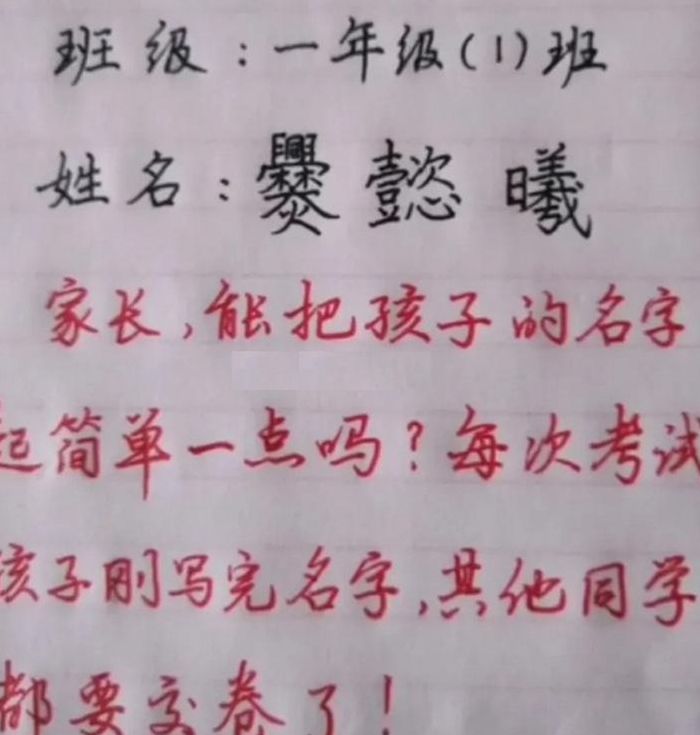 班级：一年级(1)班
姓名：爨懿曦
家长，能把孩子的名字
起简单一点吗？每次考试
孩子刚写完名字，其他同学
都要交卷了！